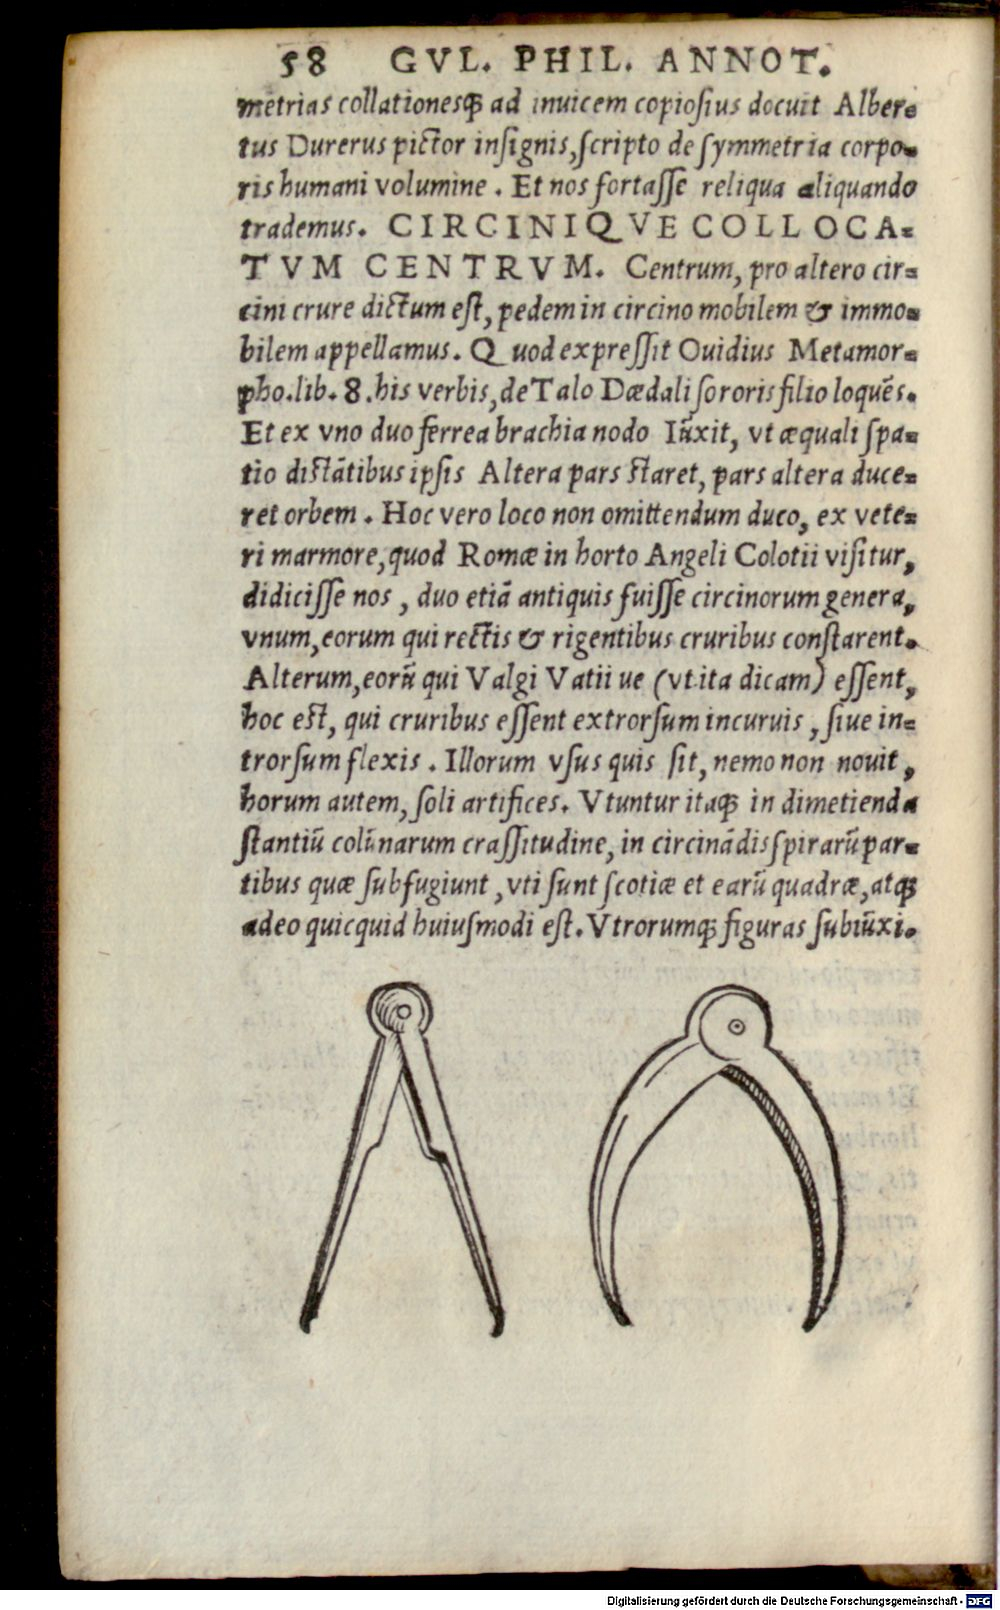 58 GVL. PHIL. ANNOT.
metrias collationesq́ꝫ ad inuicem copiosius docuit Alber-
tus Durerus pictor insignis, scripto de symmetria corpo-
ris humani volumine. Et nos fortasse reliqua aliquando
trademus. CIRCINIQVE COLLOCA-
TVM CENTRVM. Centrum, pro altero cir-
cini crure dictum est, pedem in circino mobilem & immo-
bilem appellamus. Quod expressit Ouidius Metamor-
pho.lib.8.his verbis, de Talo Dædali sororis filio loquẽs.
Et ex vno duo ferrea brachia nodo Iũxit, vt æquali spa-
tio distãtibus ipsis Altera pars staret, pars altera duce-
ret orbem. Hoc vero loco non omittendum duco, ex vete-
ri marmore, quod Romæ in horto Angeli Colotii visitur,
didicisse nos, duo etiã antiquis fuisse circinorum genera,
vnum, eorum qui rectis & rigentibus cruribus constarent.
Alterum, eorũ qui Valgi Vatii ue (vt ita dicam) essent,
hoc est, qui cruribus essent extrorsum incuruis, siue in-
trorsum flexis. Illorum vsus quis sit, nemo non nouit,
horum autem, soli artifices. Vtuntur itaqꝫ in dimetienda
stantiũ colũnarum crassitudine, in circinãdis spirarũ par-
tibus quæ subfugiunt, vti sunt scotiæ et earũ quadræ, atqꝫ
adeo quicquid huiusmodi est. Vtrorumqꝫ figuras subiũxi.
Digitalisierung gefördert durch die Deutsche Forschungsgemeinschaft - DFG